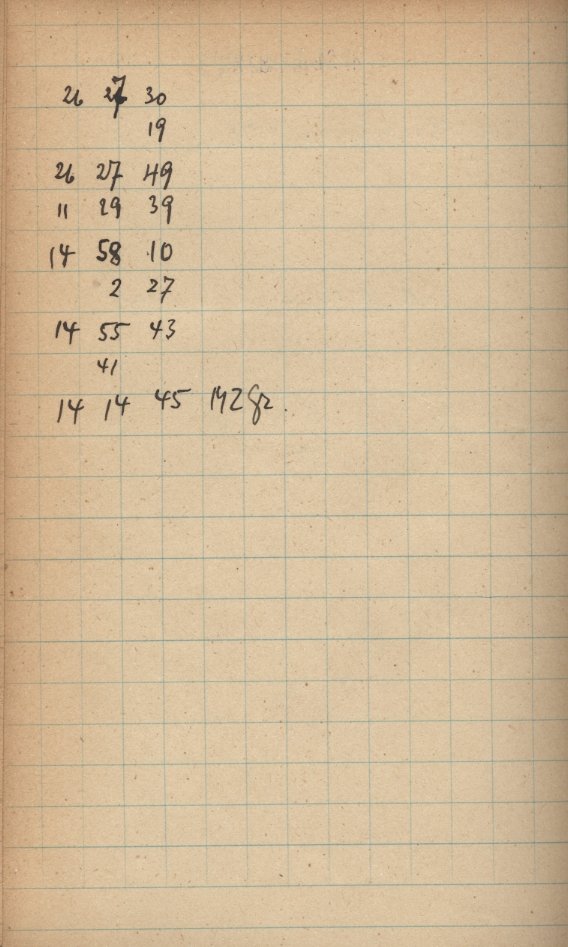 26 27 30
19
26 27 49
11 29 39
14 58 10
2 27
14 55 43
41
14 14 45 142 gr.